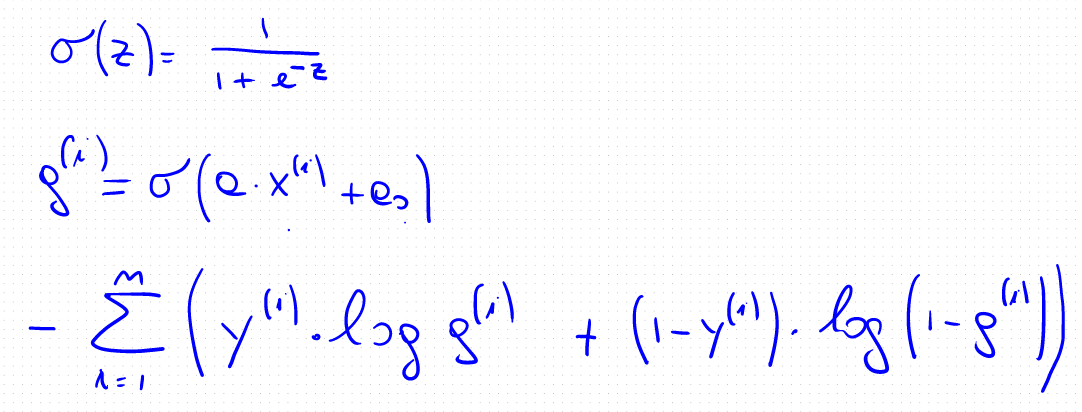 σ(z) = 1 / (1 + e^{-z})
g^{(i)} = σ(θ · x^{(i)} + θ_0)
- ∑_{i=1}^{n} (y^{(i)} · log g^{(i)} + (1 - y^{(i)}) · log(1 - g^{(i)}))